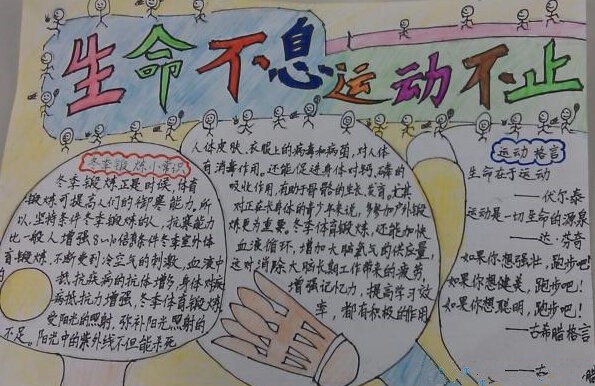 生命不息运动不止
冬季锻炼小常识
冬季锻炼正是时候,体育
锻炼可提高人们的御寒能力,所
以,坚持冬季锻炼的人,抗寒能力
比一般人增强8~10倍。条件冬季室外体
育锻炼,不断受到冷空气的刺激,血液中
抵抗疾病的抗体增多,身体对疾
病抵抗力增强。冬季体育锻炼,
受阳光的照射,弥补阳光照射的
不足。阳光中的紫外线不但能杀死
人体皮肤、衣服上的病毒和病菌,对人体
有消毒作用。还能促进身体对钙、磷的
吸收作用,有助于骨骼的生长、发育。尤其
对正在长身体的青少年来说,多参加户外锻
炼更为重要。冬季体育锻炼,还能加快
血液循环,增加大脑氧气的供应量,
这对消除大脑长期工作带来的疲劳,
增强记忆力,提高学习效
率,都有积极的作用
运动格言
生命在于运动
——伏尔泰
运动是一切生命的源泉
——达·芬奇
如果你想强壮,跑步吧!
如果你想健美,跑步吧!
如果你想聪明,跑步吧!
——古希腊格言
——古
腊